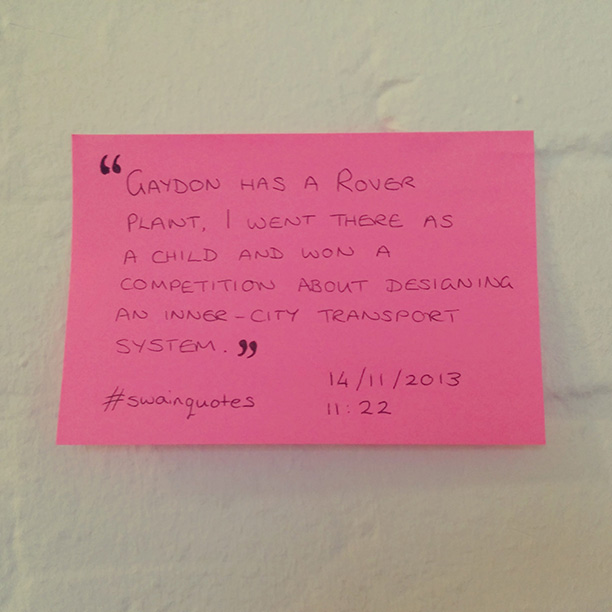 “ GAYDON HAS A ROVER
PLANT, I WENT THERE AS
A CHILD AND WON A
COMPETITION ABOUT DESIGNING
AN INNER-CITY TRANSPORT
SYSTEM. ”
#swainquotes
14/11/2013
11:22